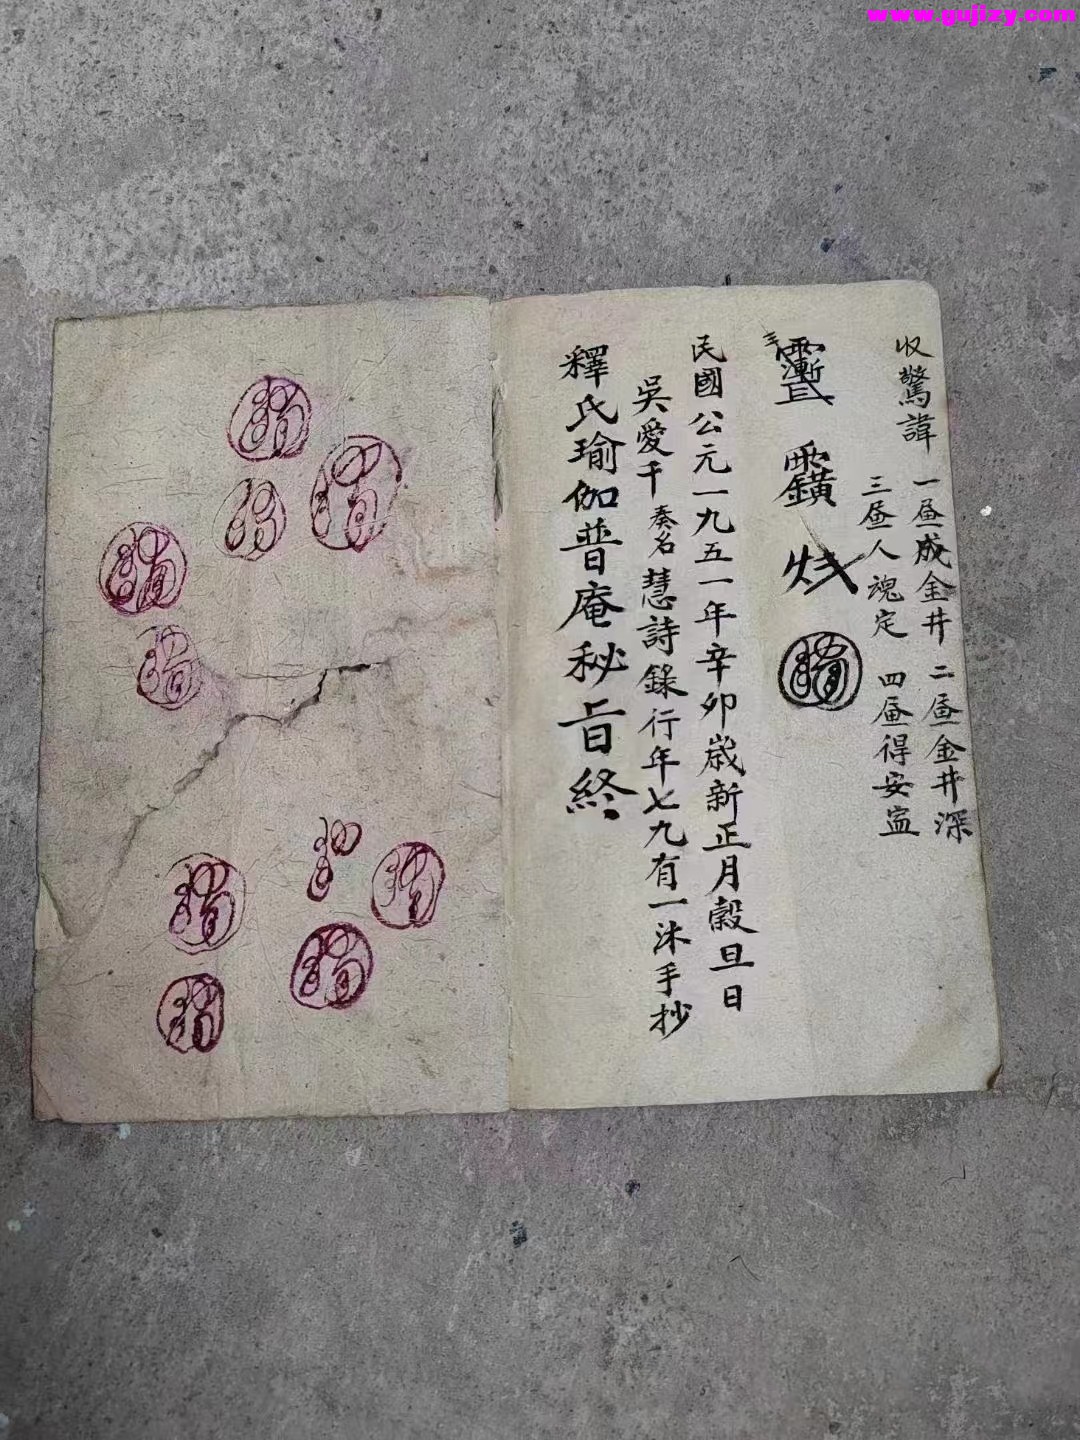 www.gujizy.com
收驚諱
一昼成金井 二昼金井深
三昼人魂定 四昼得安寍
民國公元一九五一年辛卯歲新正月穀旦日
吳愛千奏名慧詩錄行年七九有一沐手抄
釋氏瑜伽普庵秘旨終